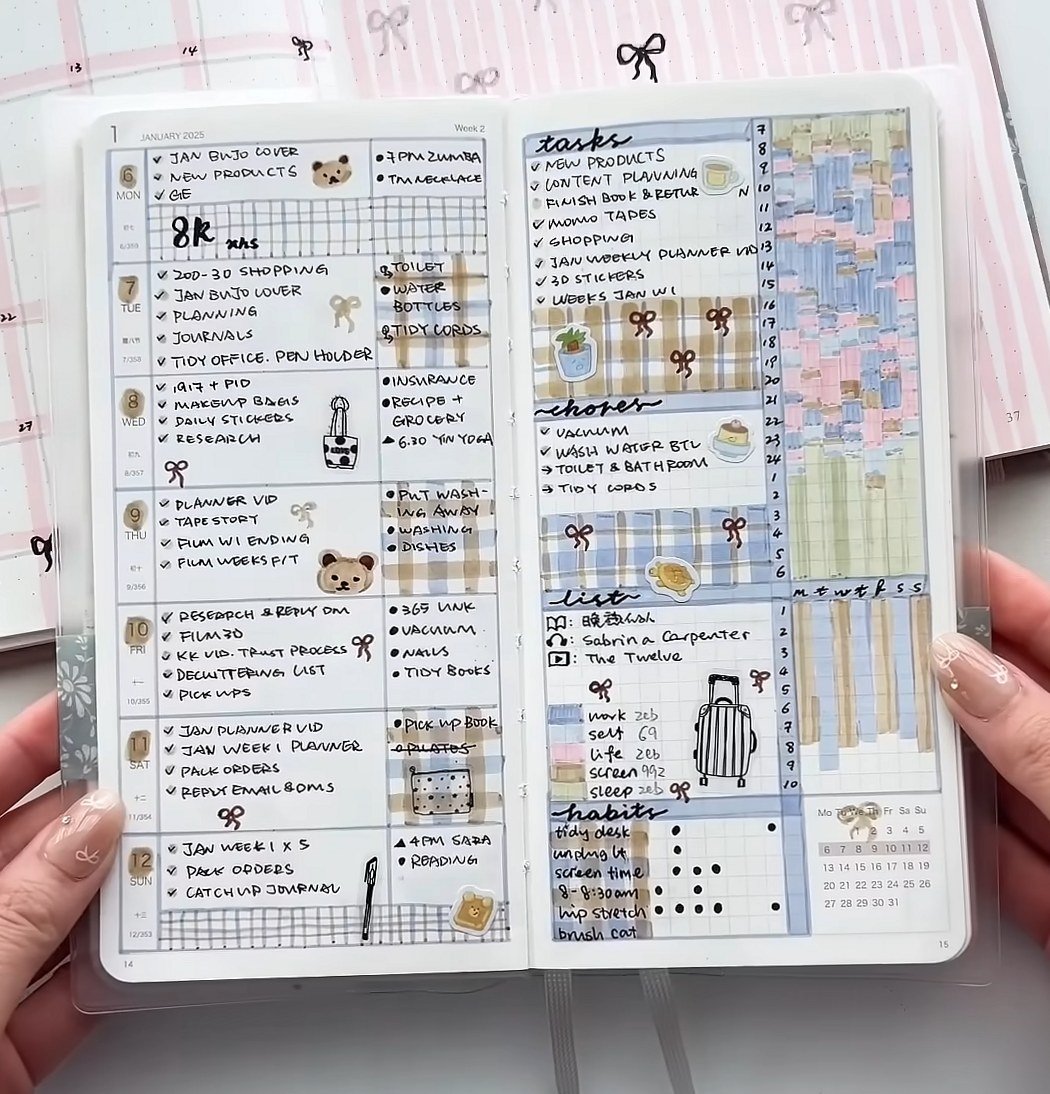 13
14
22
27
37
1 JANUARY 2025
Week 2
6
MON
初七
6/359
✓ JAN BUJO COVER
✓ NEW PRODUCTS
✓ GE
• 7PM ZUMBA
• TM NECKLACE
8k xhs
7
TUE
腊八节
7/358
✓ 200-30 SHOPPING
✓ JAN BUJO COVER
✓ PLANNING
✓ JOURNALS
✓ TIDY OFFICE. PEN HOLDER
TOILET
• WATER
BOTTLES
TIDY CORDS
8
WED
初九
8/357
✓ 1917 + PID
✓ MAKEUP BAGS
✓ DAILY STICKERS
✓ RESEARCH
• INSURANCE
• RECIPE +
GROCERY
▲ 6.30 YIN YOGA
9
THU
初十
9/356
✓ PLANNER VID
✓ TAPE STORY
✓ FILM W1 ENDING
✓ FILM WEEKS F/T
• PUT WASH-
ING AWAY
• WASHING
• DISHES
10
FRI
十一
10/355
✓ RESEARCH & REPLY DM
✓ FILM 3D
✓ KK VID. TRUST PROCESS
✓ DECLUTTERING LIST
✓ PICK UPS
• 365 LINK
• VACUUM
• NAILS
• TIDY BOOKS
11
SAT
十二
11/354
✓ JAN PLANNER VID
✓ JAN WEEK 1 PLANNER
✓ PACK ORDERS
✓ REPLY EMAIL & DMS
• PICK UP BOOK
• PILATES
12
SUN
十三
12/353
✓ JAN WEEK 1 X 5
✓ PACK ORDERS
✓ CATCH UP JOURNAL
▲ 4PM SARA
• READING
14
tasks
✓ NEW PRODUCTS
✓ CONTENT PLANNING
FINISH BOOK & RETURN
✓ MOMO TAPES
✓ SHOPPING
✓ JAN WEEKLY PLANNER VID
✓ 3D STICKERS
✓ WEEKS JAN W1
chores
✓ VACUUM
✓ WASH WATER BTL
→ TOILET & BATHROOM
→ TIDY CORDS
list
: Sabrina Carpenter
: The Twelve
work
self 69
life
screen
sleep
habits
tidy desk
unplug lt
screen time
8-8:30am
hip stretch
brush cat
7
8
9
10
11
12
13
14
15
16
17
18
19
20
21
22
23
24
1
2
3
4
5
6
m t w t f s s
1
2
3
4
5
6
7
8
9
10
Mo Tu We Th Fr Sa Su
1 2 3 4 5
6 7 8 9 10 11 12
13 14 15 16 17 18 19
20 21 22 23 24 25 26
27 28 29 30 31
15